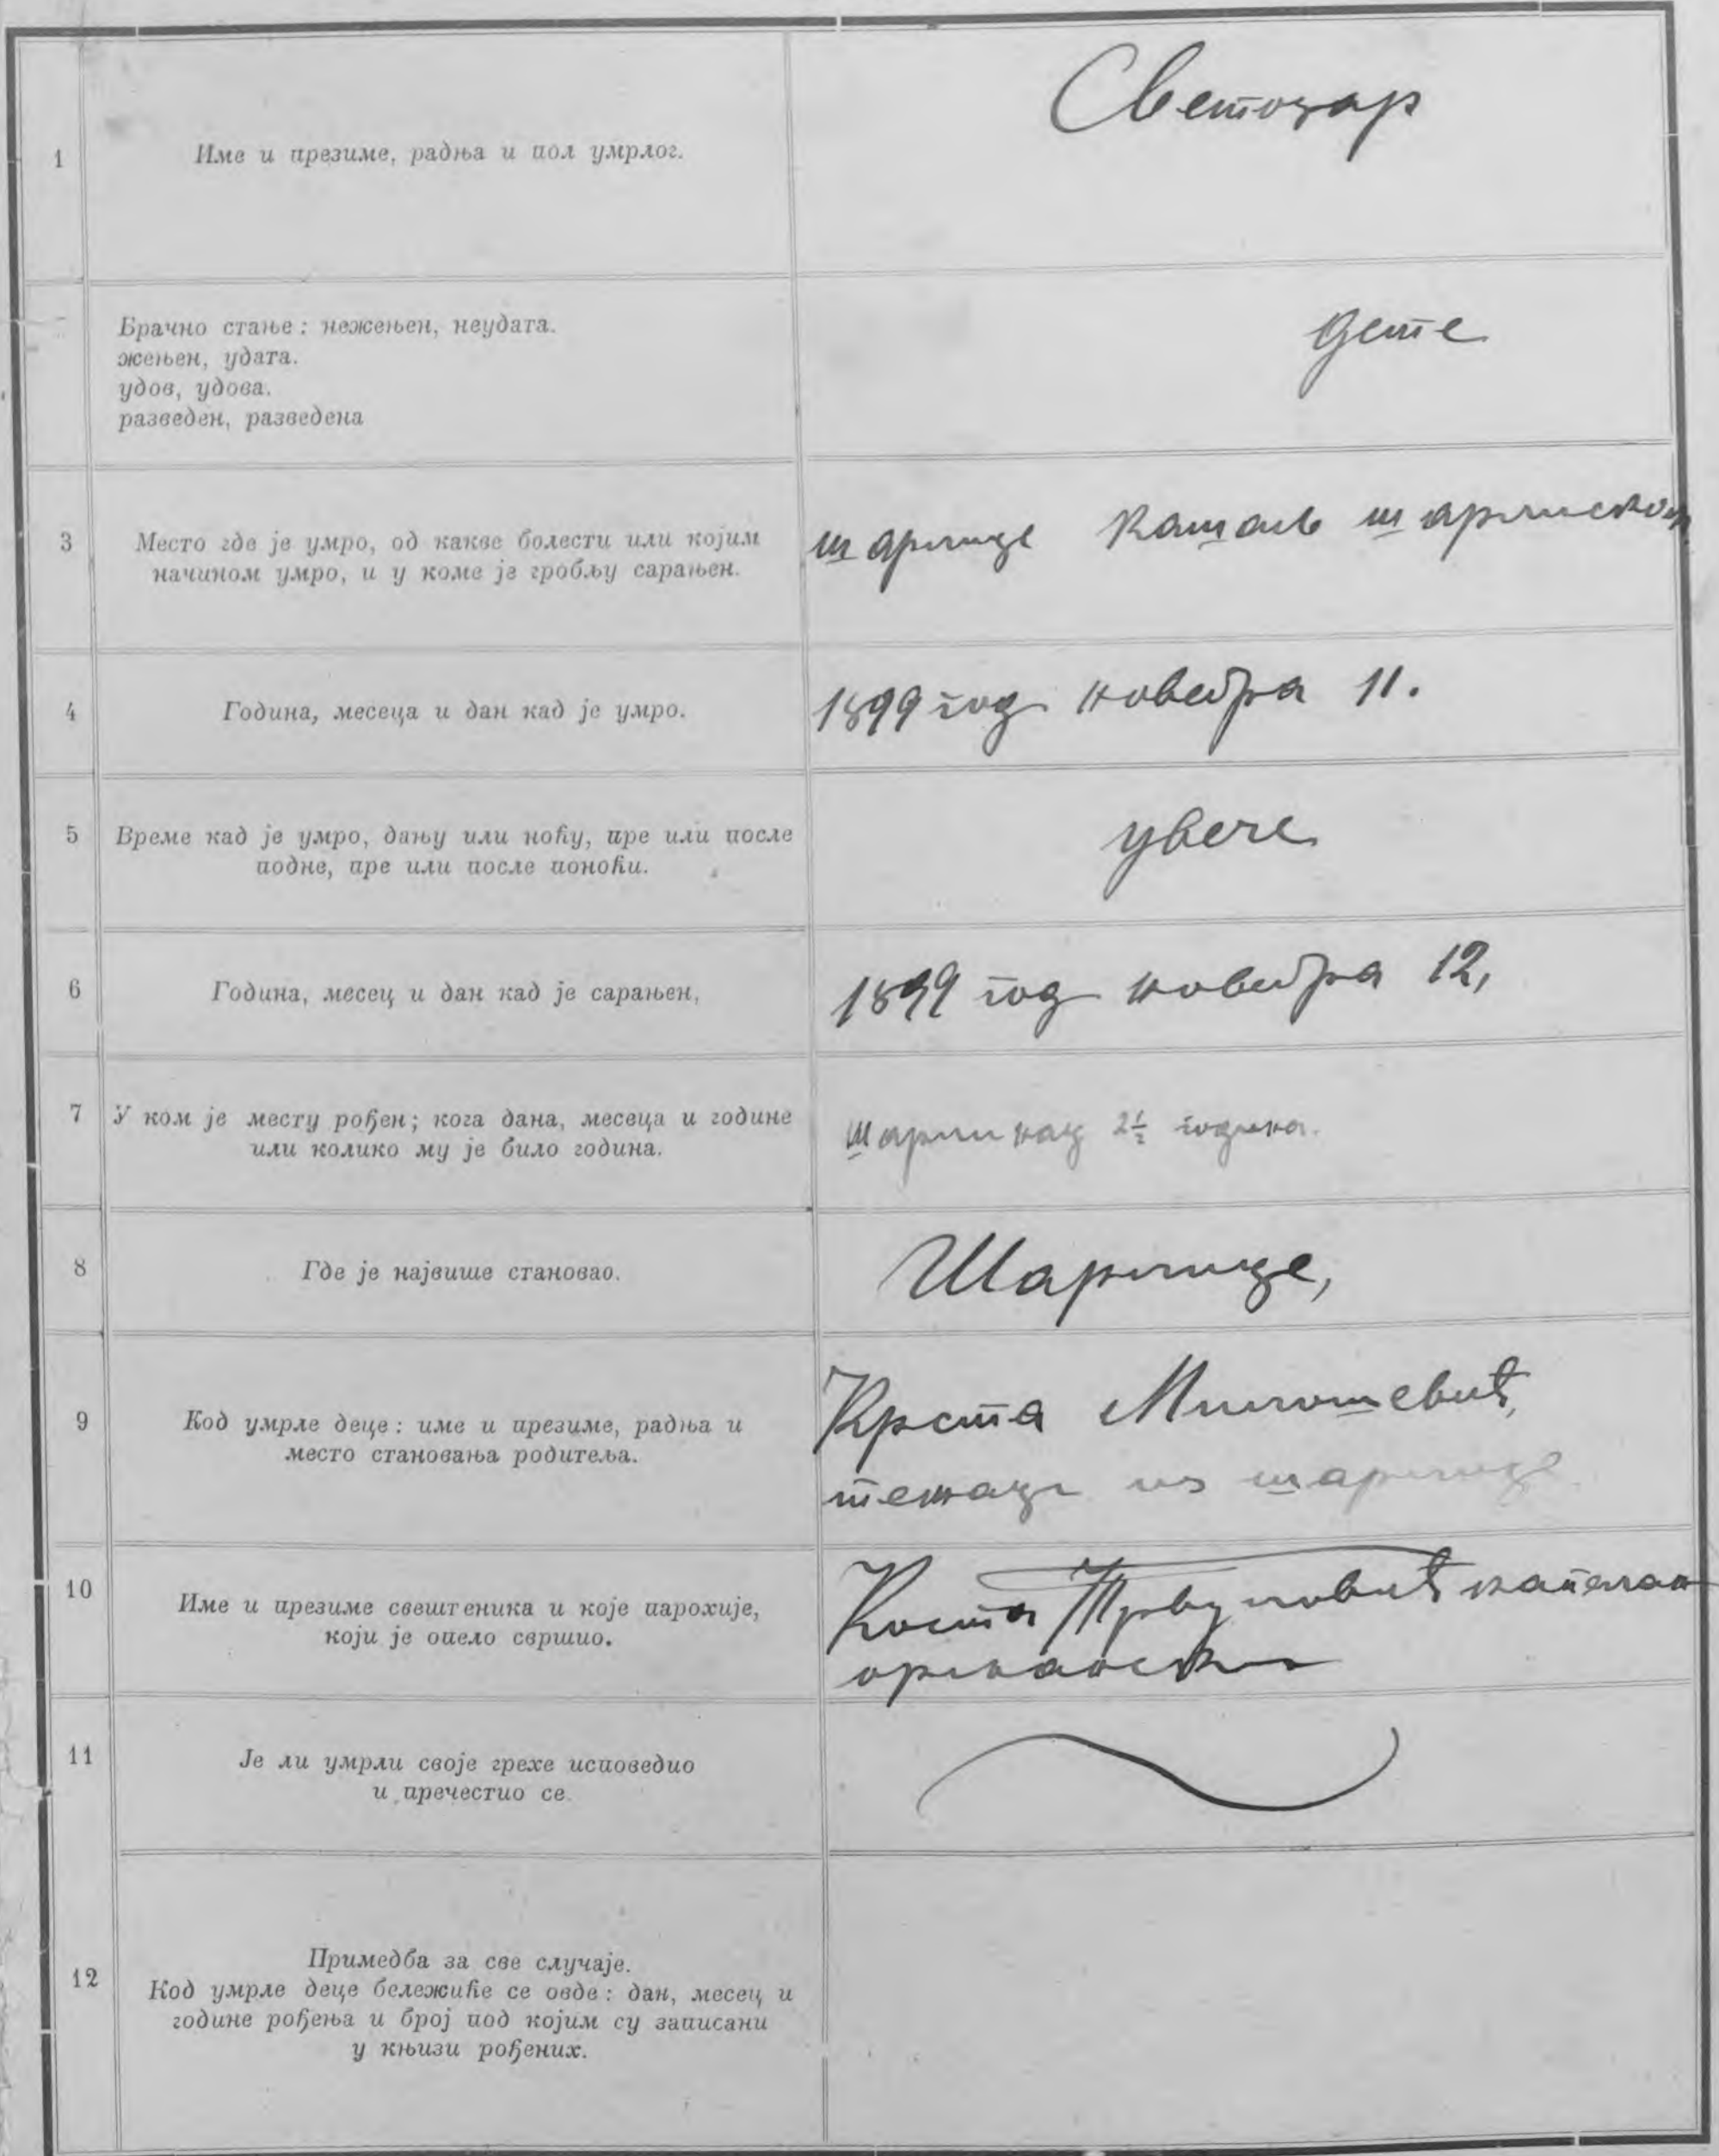 1
Име и презиме, радња и пол умрлог.
Светозар
Брачно стање: нежењен, неудата.
жењен, удата.
удов, удова.
разведен, разведена
дете
3
Место где је умро, од какве болести или којим
начином умро, и у коме је гробљу сарањен.
Шарлинце Кашаљ
4
Година, месеца и дан кад је умро.
1899 год новебра 11.
5
Време кад је умро, дању или ноћу, пре или после
подне, пре или после поноћи.
увече
6
Година, месец и дан кад је сарањен,
1899 год новебра 12,
7
У ком је месту рођен; кога дана, месеца и године
или колико му је било година.
2 1/2 година.
8
Где је највише становао.
9
Код умрле деце: име и презиме, радња и
место становања родитеља.
Крста Милошевић,
тежаци из
10
Име и презиме свештеника и које парохије,
који је опело свршио.
Коста капелан
орљански
11
Је ли умрли своје грехе исповедио
и пречестио се.
12
Примедба за све случаје.
Код умрле деце бележиће се овде: дан, месец и
године рођења и број под којим су записани
у књизи рођених.